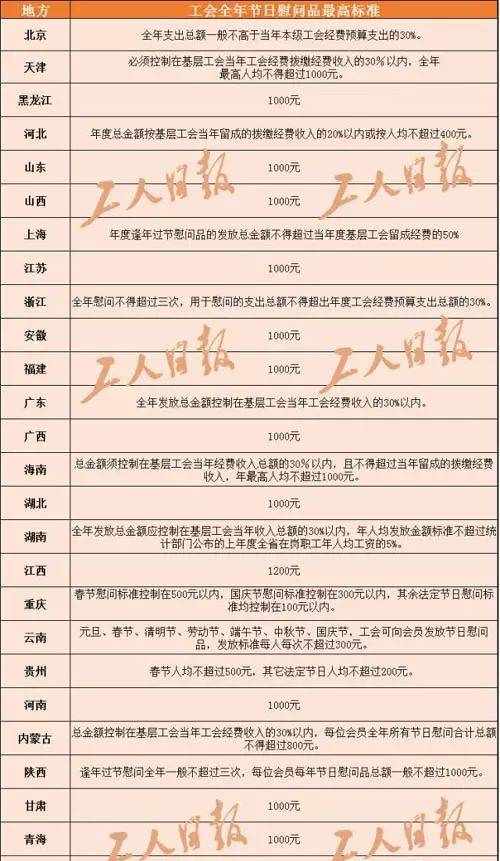 地方 工会全年节日慰问品最高标准
北京 全年支出总额一般不高于当年本级工会经费预算支出的30%。
天津 必须控制在基层工会当年工会经费拨缴经费收入的30%以内，全年
最高人均不得超过1000元。
黑龙江 1000元
河北 年度总金额按基层工会当年留成的拨缴经费收入的20%以内或按人均不超过400元。
山东 1000元
山西 1000元
工人日报 工人日报
上海 年度逢年过节慰问品的发放总金额不得超过当年度基层工会留成经费的50%
江苏 1000元
浙江 全年慰问不得超过三次，用于慰问的支出总额不得超出年度工会经费预算支出总额的30%。
安徽 1000元
福建 1000元
工人日报 工人日报
广东 全年发放总金额控制在基层工会当年工会经费收入的30%以内。
广西 1000元
海南 总金额须控制在基层工会当年经费收入总额的30%以内，且不得超过当年留成的拨缴经费
收入，年最高人均不超过1000元。
湖北 1000元
湖南 全年发放总金额应控制在基层工会当年收入总额的30%以内，年人均发放金额标准不超过统
计部门公布的上年度全省在岗职工年人均工资的5%。
江西 1200元
重庆 春节慰问标准控制在500元以内，国庆节慰问标准控制在300元以内，其余法定节日慰问标
准均控制在100元以内。
云南 元旦、春节、清明节、劳动节、端午节、中秋节、国庆节，工会可向会员发放节日慰问
品，发放标准每人每次不超过300元。
贵州 春节人均不超过500元，其它法定节日人均不超过200元。
河南 1000元
内蒙古 总金额控制在基层工会当年工会经费收入的30%以内，每位会员全年所有节日慰问合计总额
不得超过800元。
陕西 逢年过节慰问全年一般不超过三次，每位会员每年节日慰问品总额一般不超过1000元。
甘肃 1000元
青海 1000元
工人日报 工人日报